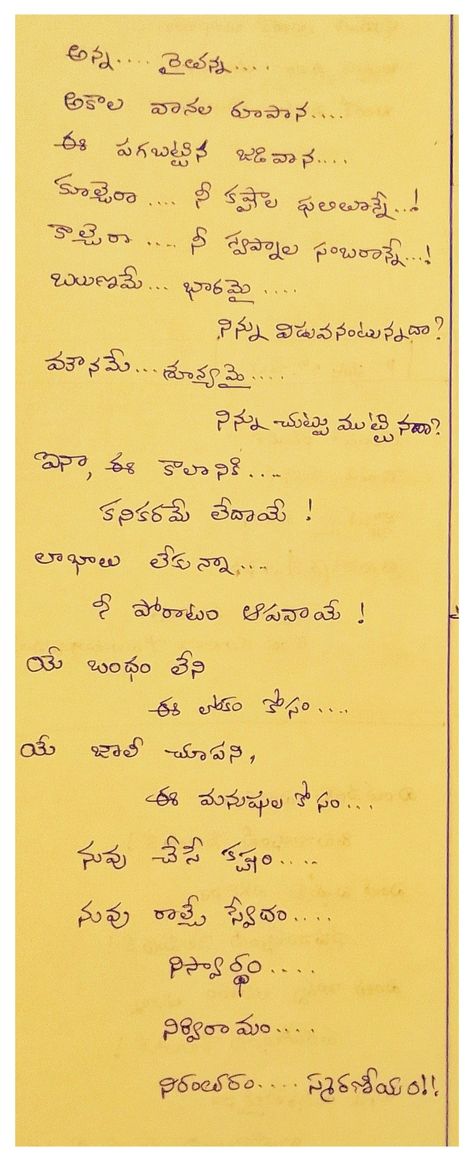 అన్న.... రైతన్న....
అకాల వానల రూపాన....
ఈ పగబట్టిన జడివాన....
కూల్చెరా .... నీ కష్టాల ఫలితాన్నే...!
కాల్చెరా .... నీ స్వప్నాల సంబరాన్నే...!
ఋణమే... భారమై ....
నిన్ను విడువనంటున్నదా?
మౌనమే... శూన్యమై ....
నిన్ను చుట్టుముట్టినదా?
ఐనా, ఈ కాలానికి....
కనికరమే లేదాయే !
లాభాలు లేకున్నా....
నీ పోరాటం ఆపవాయే !
యే బంధం లేని
ఈ లోకం కోసం....
యే జాలీ చూపని,
ఈ మనుషుల కోసం...
నువు చేసే కష్టం....
నువు రాల్చే స్వేదం....
నిస్వార్థం....
నిర్విరామం....
నిరంతరం.... స్మరణీయం!!